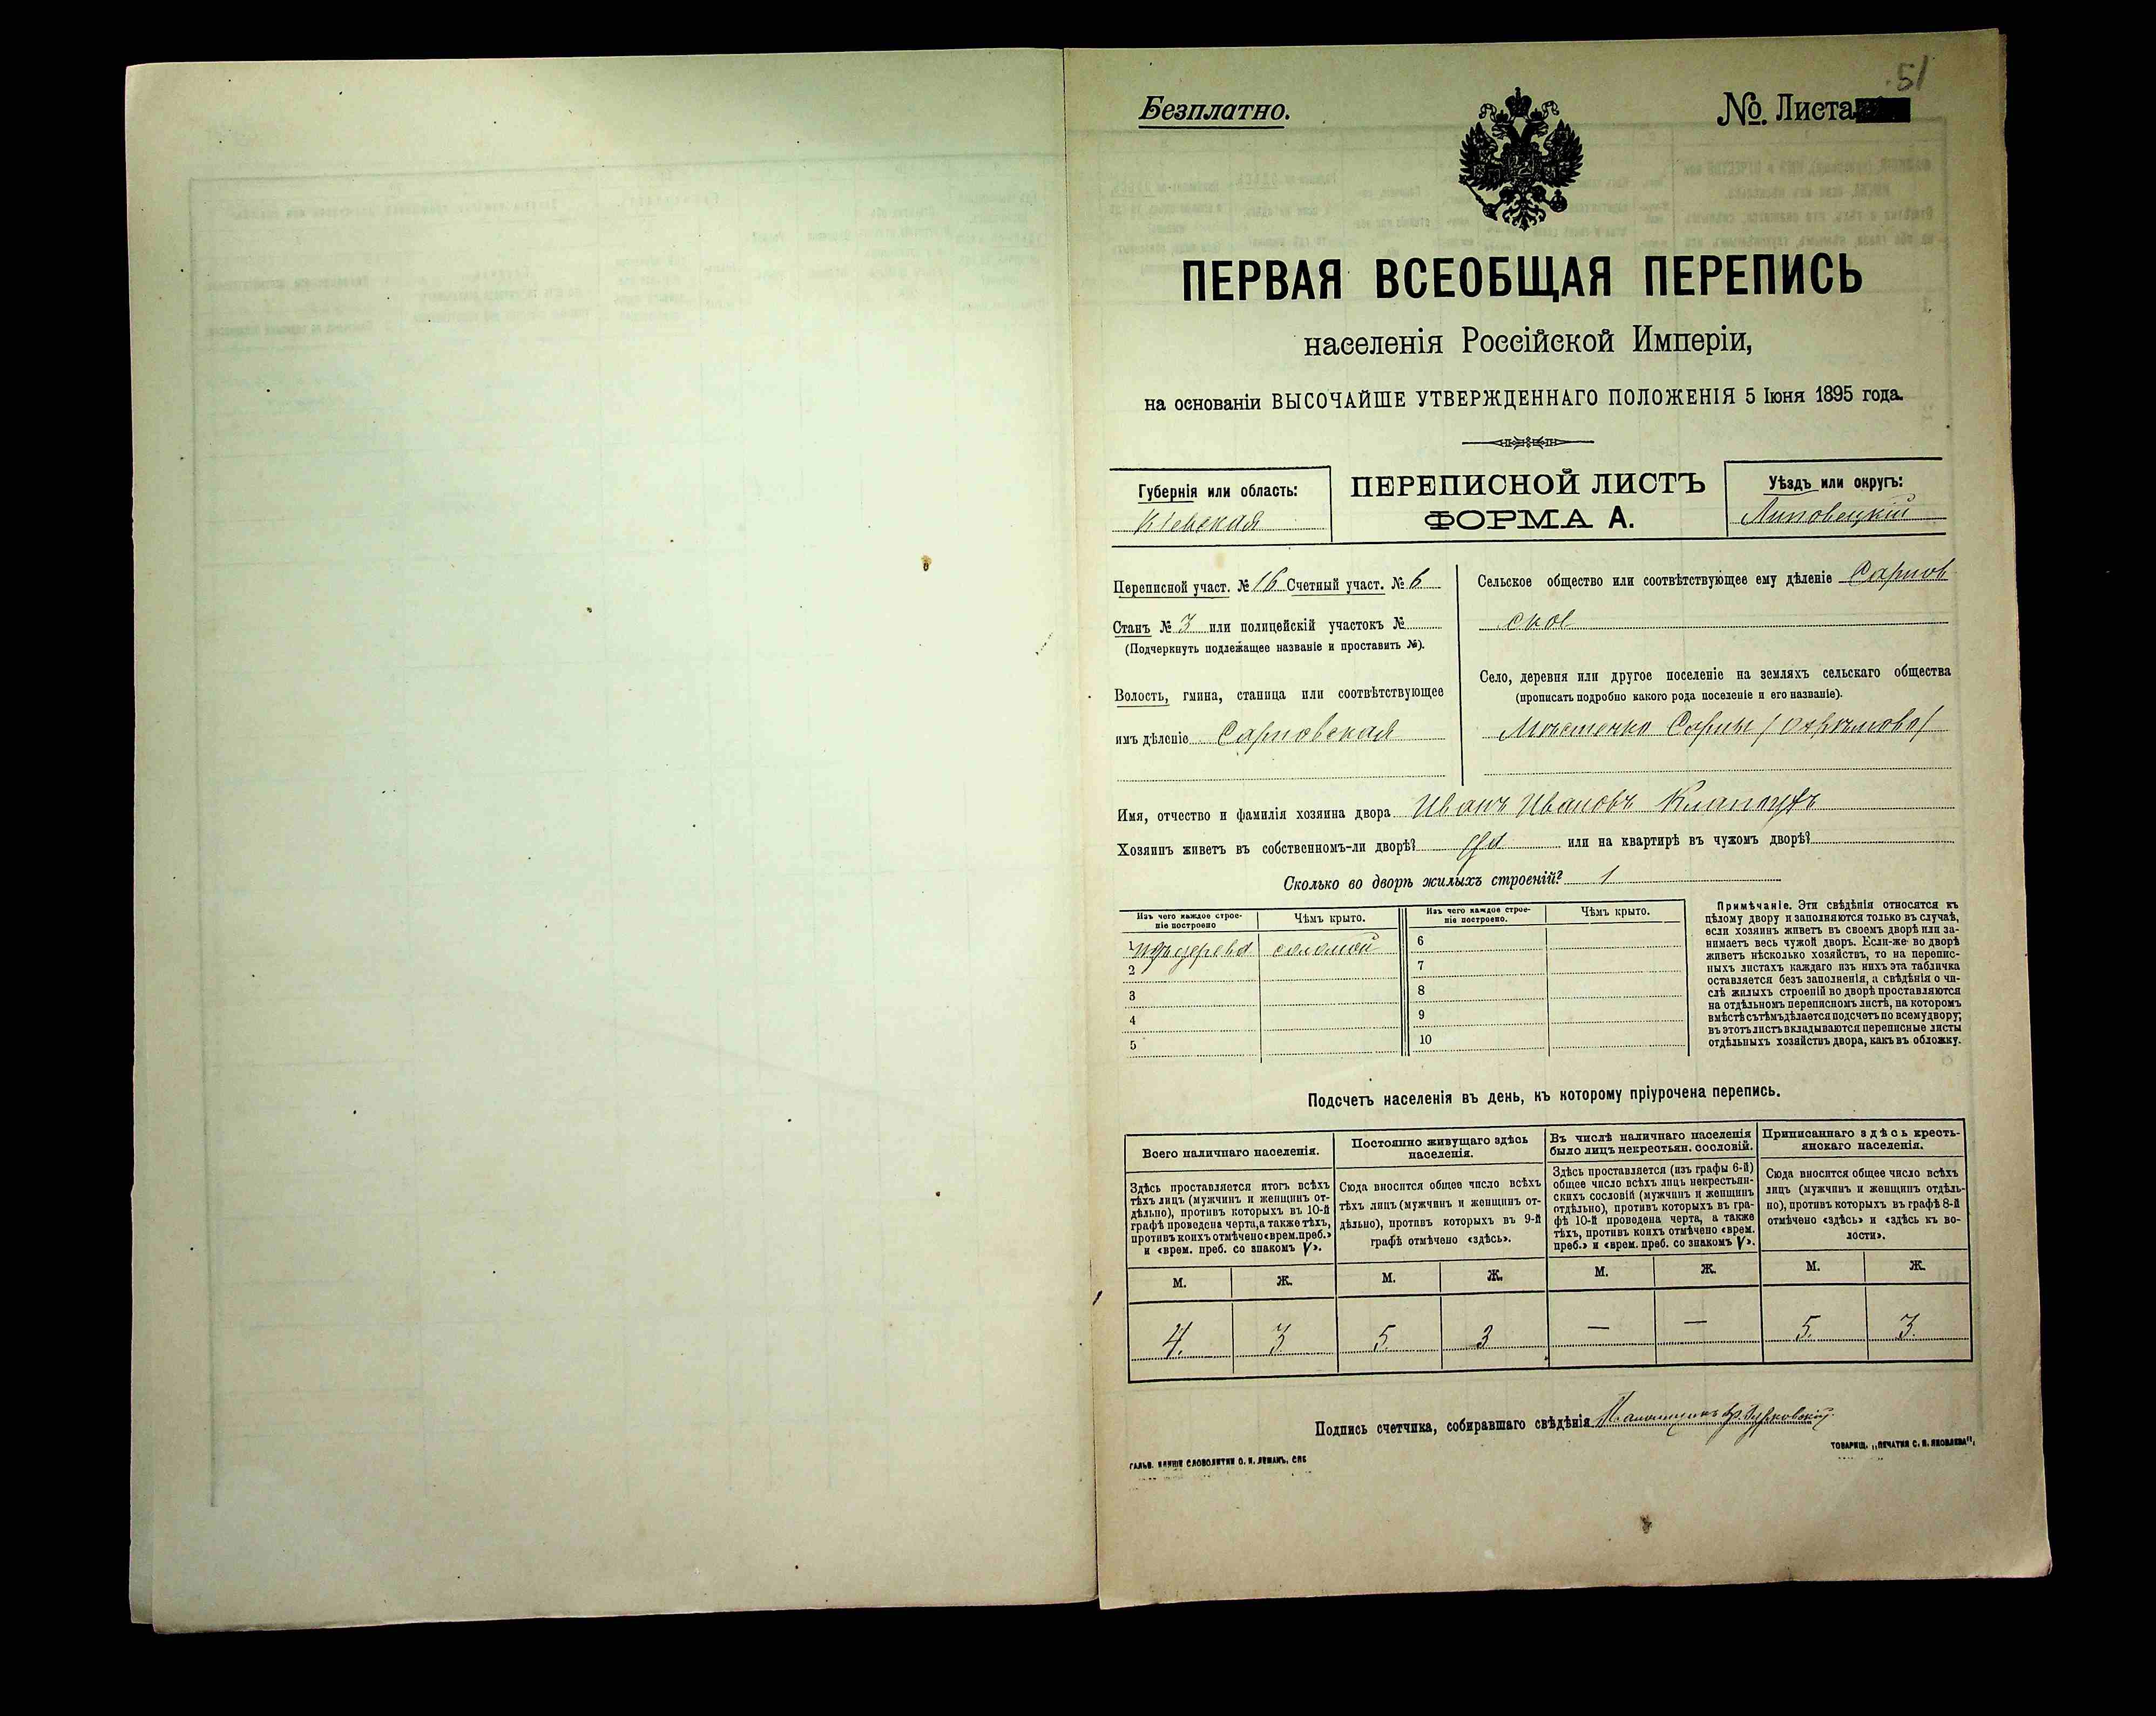 51
Безплатно.
№. Листа
ПЕРВАЯ ВСЕОБЩАЯ ПЕРЕПИСЬ
населенія Россійской Имперіи,
на основаніи ВЫСОЧАЙШЕ УТВЕРЖДЕННАГО ПОЛОЖЕНІЯ 5 Іюня 1895 года.
Губернія или область:
Кіевская
ПЕРЕПИСНОЙ ЛИСТЪ
ФОРМА А.
Уѣздъ или округъ:
Липовецкій
Переписной участ. № 16 Счетный участ. № 6
Станъ № 3 или полицейскій участокъ №
(Подчеркнуть подлежащее названіе и проставить №).
Волость, гмина, станица или соотвѣтствующее
имъ дѣленіе Сарновская
Сельское общество или соотвѣтствующее ему дѣленіе Сарнов
ское
Село, деревня или другое поселеніе на земляхъ сельскаго общества
(прописать подробно какого рода поселеніе и его названіе).
Мѣстечко Сарны
Имя, отчество и фамилія хозяина двора Иванъ Ивановъ
Хозяинъ живетъ въ собственномъ-ли дворѣ? да или на квартирѣ въ чужомъ дворѣ?
Сколько во дворѣ жилыхъ строеній? 1
Изъ чего каждое строе-
ніе построено
Чѣмъ крыто.
Изъ чего каждое строе-
ніе построено.
Чѣмъ крыто.
1 изъ дерева соломой
2
3
4
5
6
7
8
9
10
Примѣчаніе. Эти свѣдѣнія относятся къ
цѣлому двору и заполняются только въ случаѣ,
если хозяинъ живетъ въ своемъ дворѣ или за-
нимаетъ весь чужой дворъ. Если-же во дворѣ
живетъ нѣсколько хозяйствъ, то на перепис-
ныхъ листахъ каждаго изъ нихъ эта табличка
оставляется безъ заполненія, а свѣдѣнія о чи-
слѣ жилыхъ строеній во дворѣ проставляются
на отдѣльномъ переписномъ листѣ, на которомъ
вмѣстѣ съ тѣмъ дѣлается подсчетъ по всему двору;
въ этотъ листъ вкладываются переписные листы
отдѣльныхъ хозяйствъ двора, какъ въ обложку.
Подсчетъ населенія въ день, къ которому пріурочена перепись.
Всего наличнаго населенія.
Здѣсь проставляется итогъ всѣхъ
тѣхъ лицъ (мужчинъ и женщинъ от-
дѣльно), противъ которыхъ въ 10-й
графѣ проведена черта, а также тѣхъ,
противъ коихъ отмѣчено «врем. преб.»
и «врем. преб. со знакомъ V».
Постоянно живущаго здѣсь
населенія.
Сюда вносится общее число всѣхъ
тѣхъ лицъ (мужчинъ и женщинъ от-
дѣльно), противъ которыхъ въ 9-й
графѣ отмѣчено «здѣсь».
Въ числѣ наличнаго населенія
было лицъ некрестьян. сословій.
Здѣсь проставляется (изъ графы 6-й)
общее число всѣхъ лицъ некрестьян-
скихъ сословій (мужчинъ и женщинъ
отдѣльно), противъ которыхъ въ гра-
фѣ 10-й проведена черта, а также
тѣхъ, противъ коихъ отмѣчено «врем.
преб.» и «врем. преб. со знакомъ V».
Приписаннаго здѣсь кресть-
янскаго населенія.
Сюда вносится общее число всѣхъ
лицъ (мужчинъ и женщинъ отдѣль-
но), противъ которыхъ въ графѣ 8-й
отмѣчено «здѣсь» и «здѣсь къ во-
лости».
М. Ж. М. Ж. М. Ж. М. Ж.
4. 3 5. 3 — — 5. 3.
Подпись счетчика, собиравшаго свѣдѣнія
ГАЛЬВ. КЛИШЕ СЛОВОЛИТНИ О. И. ЛЕМАНЪ, СПБ
ТОВАРИЩ. „ПЕЧАТНЯ С. П. ЯКОВЛЕВА“,